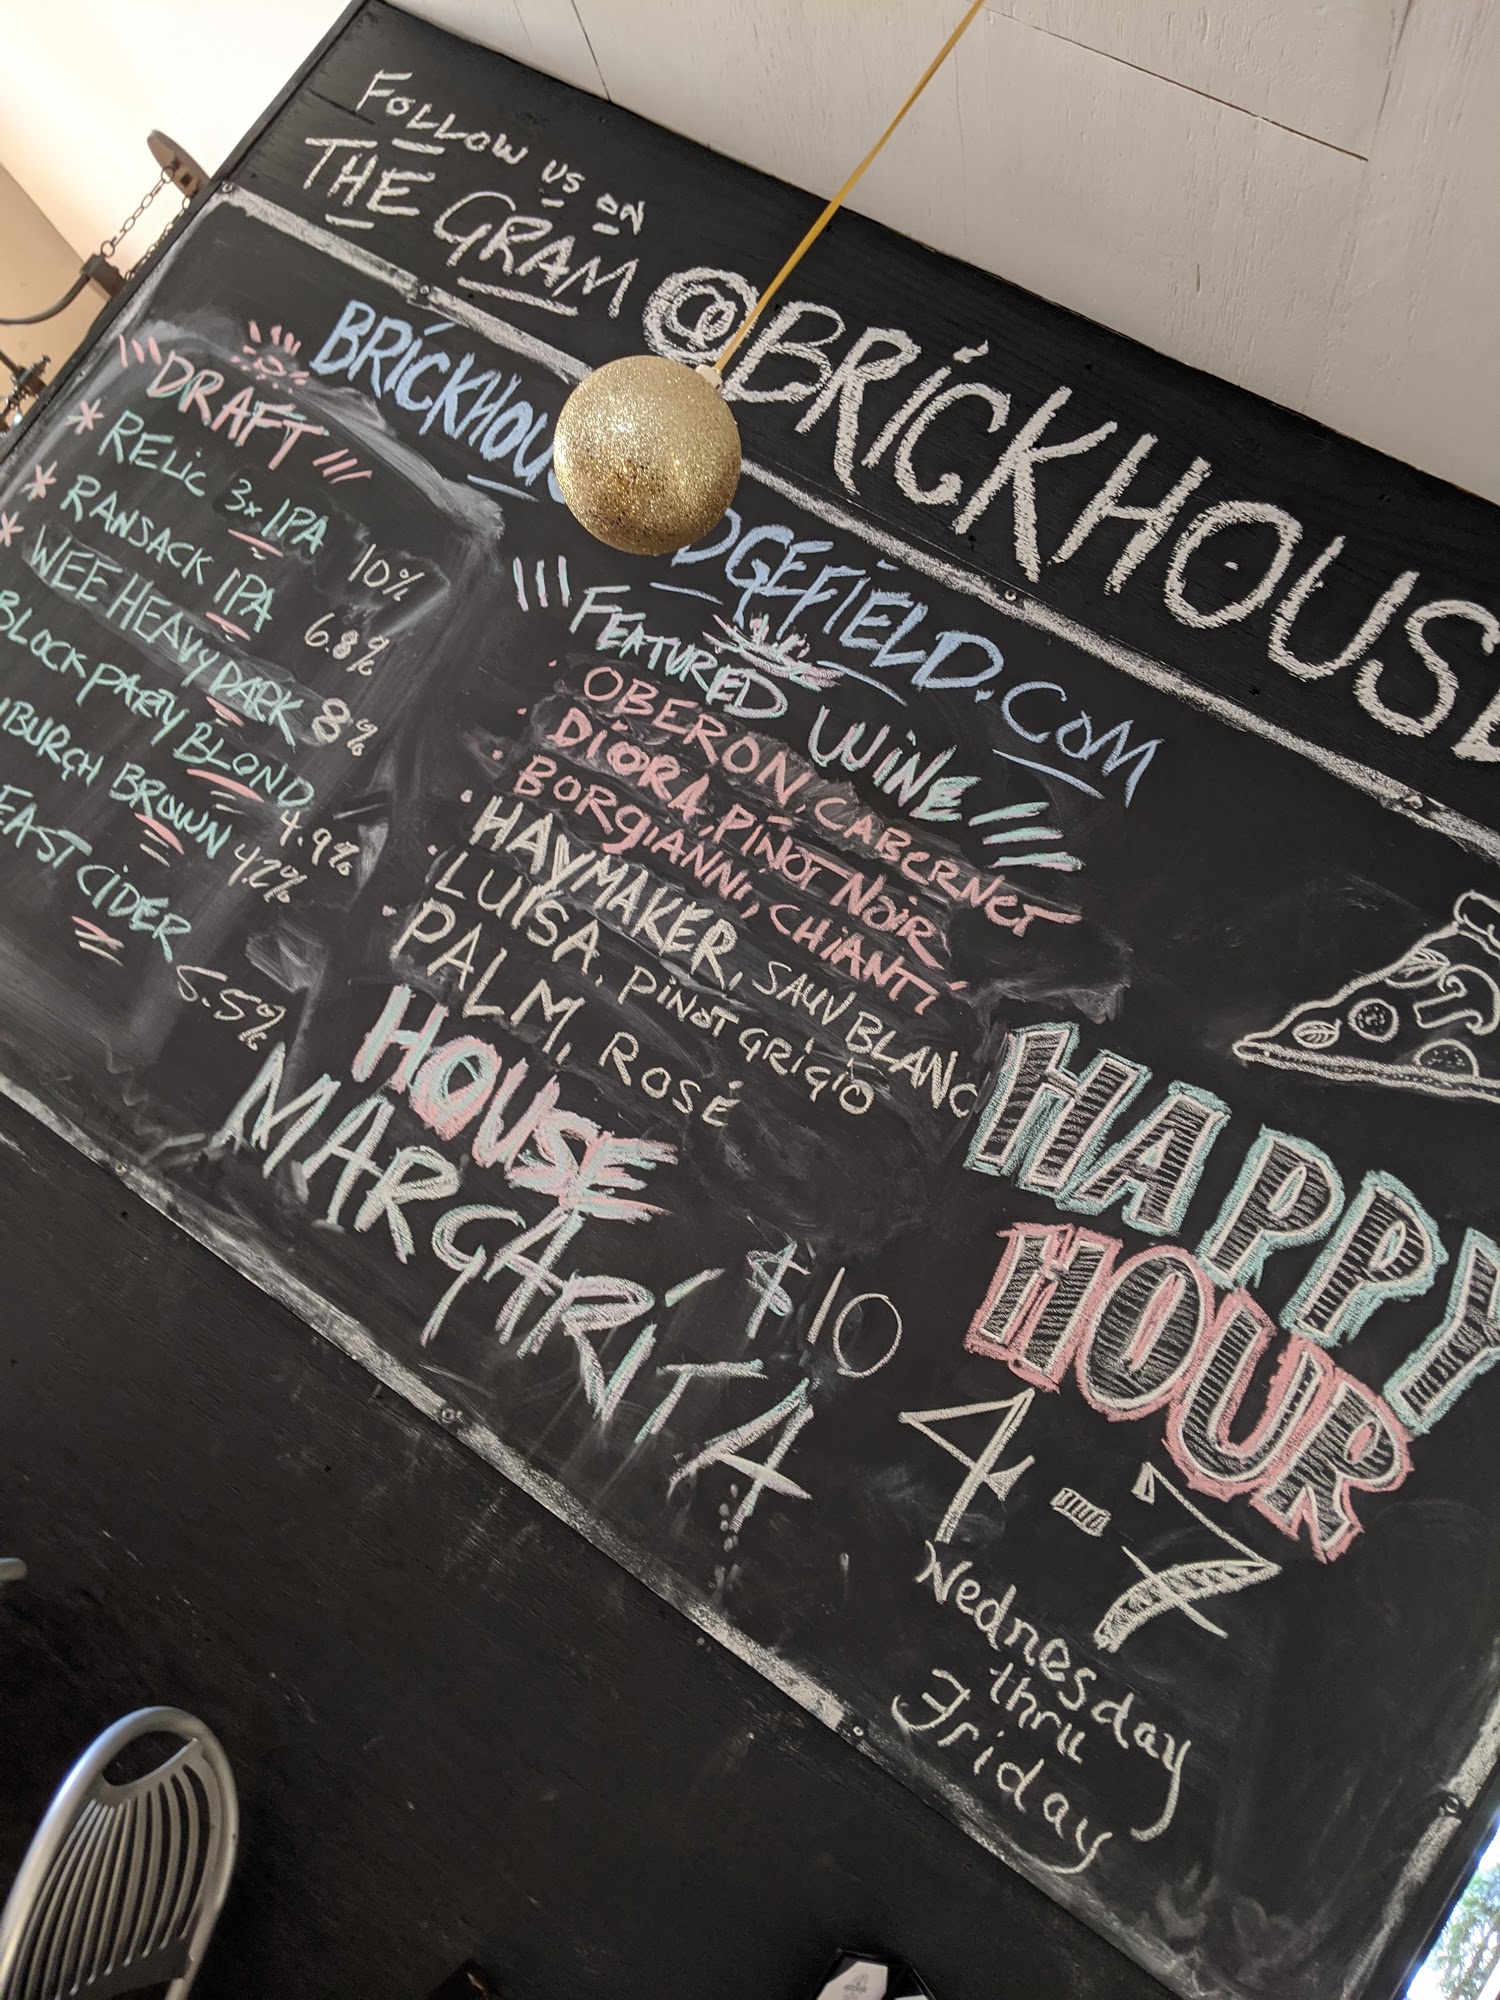 FOLLOW US ON
THE GRAM @BRICKHOUSE
BRICKHOU DGEFIELD.COM
DRAFT
* RELIC 3x IPA 10%
* RANSACK IPA 6.8%
* WEE HEAVY DARK 8%
BLOCK PARTY BLOND 4.9%
BURGH BROWN 4.2%
EAST CIDER 5.5%
FEATURED WINE
OBERON, CABERNET
DIORA, PINOT NOIR
BORGIANNI, CHIANTI
HAYMAKER, SAUV BLANC
LUISA, PINOT GRIGIO
PALM, ROSÉ
HOUSE
MARGARITA $10
HAPPY
HOUR
4-7
Wednesday
thru
Friday